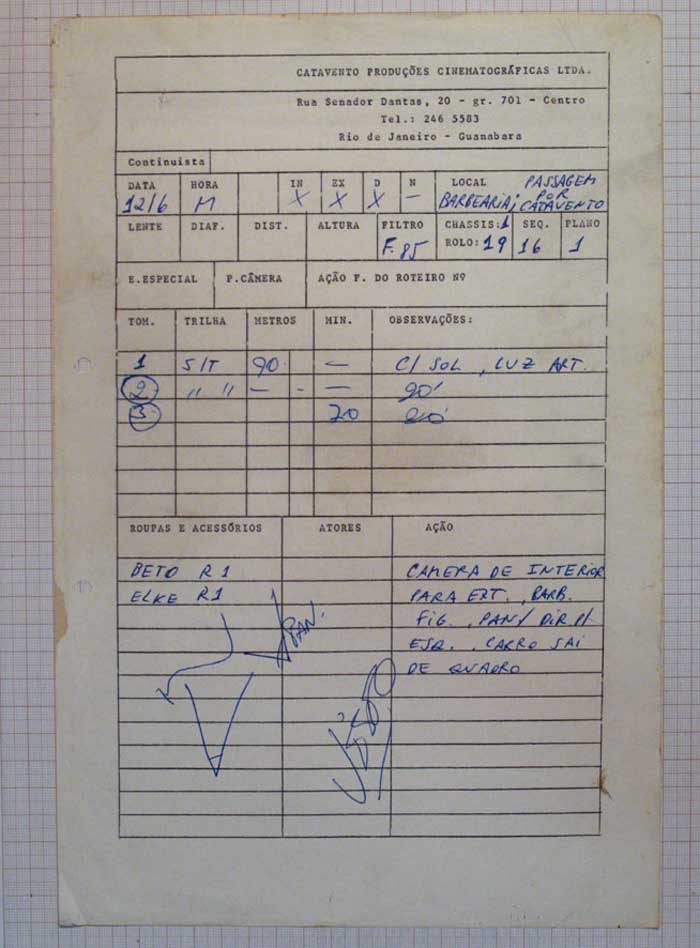 CATAVENTO PRODUÇÕES CINEMATOGRÁFICAS LTDA.
Rua Senador Dantas, 20 - gr. 701 - Centro
Tel.: 246 5583
Rio de Janeiro - Guanabara
Continuista
DATA HORA IN EX D N LOCAL PASSAGEM
12/6 M X X X — BARBEARIA; POR CATAVENTO
LENTE DIAF. DIST. ALTURA FILTRO CHASSIS: 1 SEQ. PLANO
F. 85 ROLO: 19 16 1
E.ESPECIAL P.CÂMERA AÇÃO F. DO ROTEIRO Nº
TOM. TRILHA METROS MIN. OBSERVAÇÕES:
1 S/T 90 — C/ SOL, LUZ ART.
2 " " — - —
3
ROUPAS E ACESSÓRIOS ATORES AÇÃO
BETO R1 CAMERA DE INTERIOR
ELKE R1 PARA EXT., BARB.
FIG., PAN/ DIR. P/
PAN.
ESQ., CARRO SAI
DE QUADRO